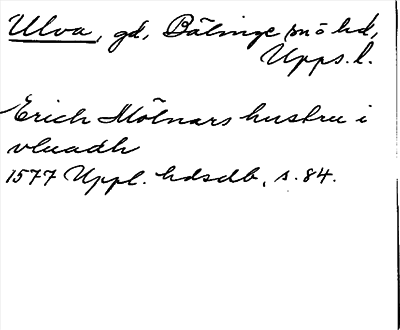 Ulva, gd, Bälinge sn o hd,
Upps.l.
Erich Mölnars hustru i
vluadh
1577 Uppl. hdsdb, s. 84.